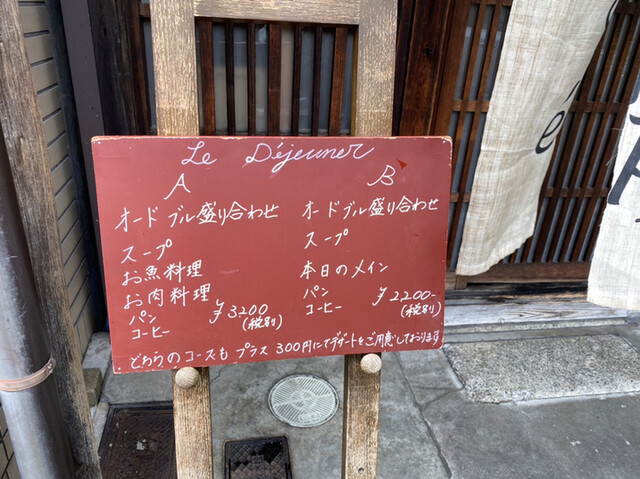 Le Déjeuner
A
オードブル盛り合わせ
スープ
お魚料理
お肉料理
パン
コーヒー
¥3200
(税別)
B
オードブル盛り合わせ
スープ
本日のメイン
パン
コーヒー
¥2200-
(税別)
どちらのコースもプラス300円にてデザートをご用意しております